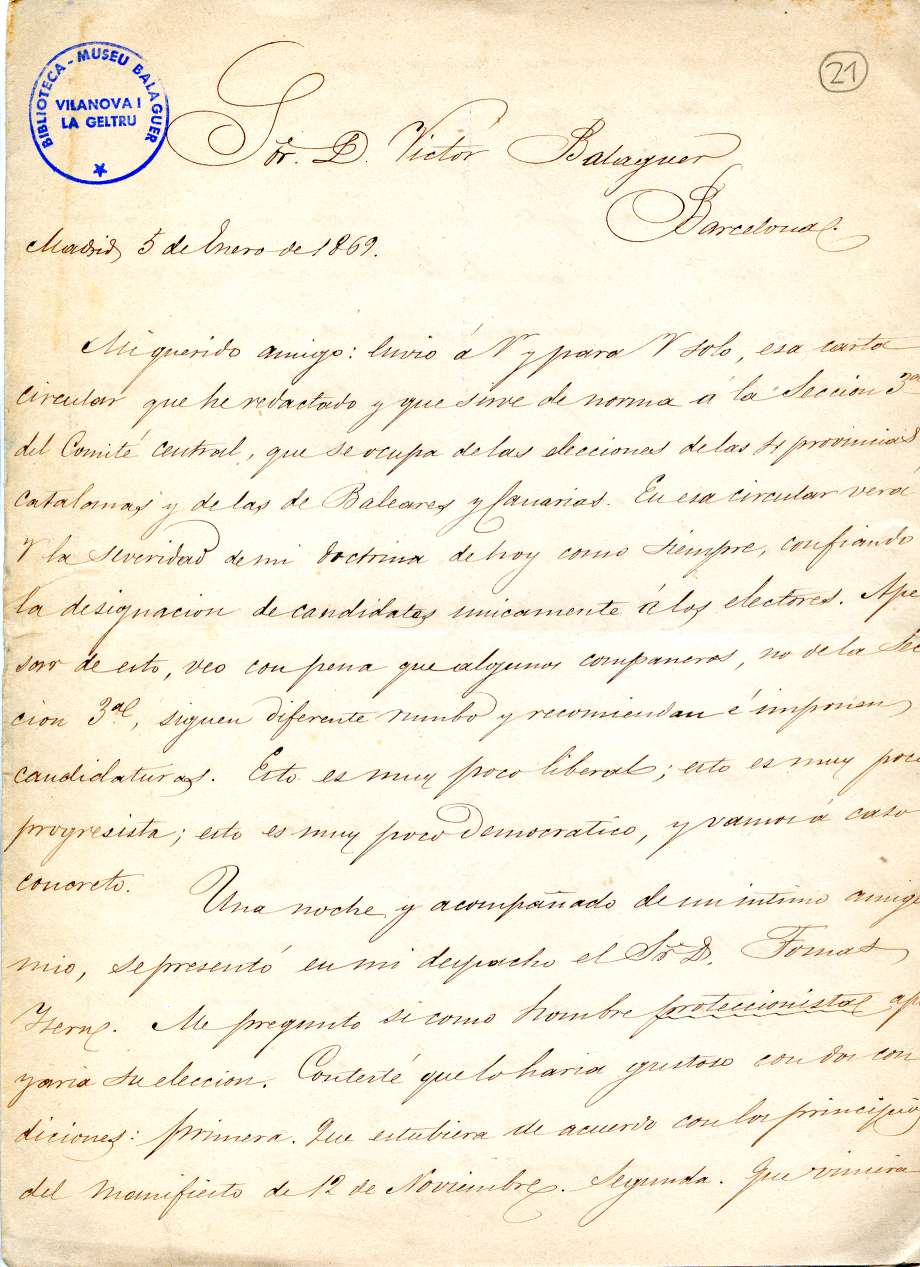 BIBLIOTECA - MUSEU BALAGUER
VILANOVA I
LA GELTRU
21
Sr. D. Victor Balaguer
Barcelona.
Madrid 5 de Enero de 1869.
Mi querido amigo: Envio á V y para V solo, esa carta
circular que he redactado y que sirve de norma á la Seccion 3ª
del Comité central, que se ocupa de las elecciones de las 4 provincias
catalanas y de las de Baleares y Canarias. En esa circular verá
V la severidad de mi doctrina de hoy como siempre, confiando
la designacion de candidatos unicamente á los electores. Ape
sar de esto, veo con pena que algunos compañeros, no de la Sec
cion 3ª, siguen diferente rumbo y recomiendan é imponen
candidaturas. Esto es muy poco liberal; esto es muy poco
progresista; esto es muy poco democratico, y vamos á caso
concreto.
Una noche y acompañado de un intimo amigo
mio, se presentó en mi despacho el Sr. D. Tomas
Me pregunto si como hombre proteccionista apo
yaria su eleccion. Contesté que lo haria gustoso con dos con
diciones: primera. Que estubiera de acuerdo con los principios
del manifiesto de 12 de Noviembre. Segunda. Que viniera